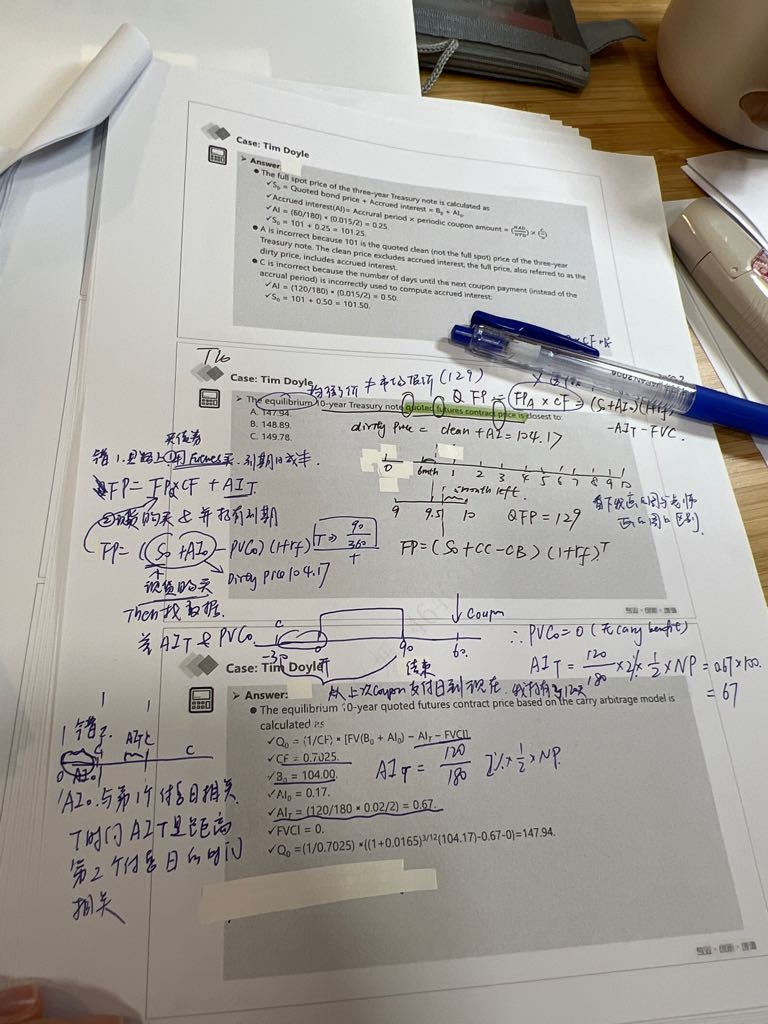 Case: Tim Doyle
➢ Answer
● The full spot price of the three-year Treasury note is calculated as
✓S₀ = Quoted bond price + Accrued interest = B₀ + AI₀.
✓Accrued interest(AI)= Accrual period × periodic coupon amount = (NAD/NTD) × (C/n)
✓AI = (60/180) * (0.015/2) = 0.25.
✓S₀ = 101 + 0.25 = 101.25.
● A is incorrect because 101 is the quoted clean (not the full spot) price of the three-year
Treasury note. The clean price excludes accrued interest; the full price, also referred to as the
dirty price, includes accrued interest.
● C is incorrect because the number of days until the next coupon payment (instead of the
accrual period) is incorrectly used to compute accrued interest:
✓AI = (120/180) * (0.015/2) = 0.50.
✓S₀ = 101 + 0.50 = 101.50.
Case: Tim Doyle
均衡价 ≠ 市场报价 (129)
QFP = FPA × CF = (S+AI₀)(1+rf)
-AIT - FVC.
➢ The equilibrium 10-year Treasury note quoted futures contract price is closest to:
A. 147.94.
B. 148.89.
C. 149.78.
dirty price = clean + AI = 104.17
0 6mth 1 2 3 4 5 6 7 8 9 10
month left.
9 9.5 10
QFP = 129
FP = FP×CF + AIT
FP= (S₀+AI₀ - PVC₀)(1+rf) T ⇒ 90/360
dirty price 104.17
FP=(S₀+CC-CB)(1+rf)ᵀ
现货的买
Then 找数据.
差 AIT & PVC₀
C -30 0 90 60.
coupon
∴ PVC₀=0 (无 carry benefit)
AIT = 120/180 × 2% × 1/2 × NP = 0.67×100.
= 67
开 结束
Case: Tim Doyle
从上次coupon支付日到现在.
➢ Answer:
● The equilibrium 10-year quoted futures contract price based on the carry arbitrage model is
calculated as
✓Q₀ = (1/CF) × [FV(B₀ + AI₀) − AIT − FVCI]
✓CF = 0.7025.
✓B₀ = 104.00.
✓AI₀ = 0.17.
✓AIT = (120/180 * 0.02/2) = 0.67.
✓FVCI = 0.
✓Q₀ =(1/0.7025) *((1+0.0165)^3/12(104.17)-0.67-0)=147.94.
AIT = 120/180 2% × 1/2 × NP.
AI₀ 与第1个付息日相关.
T时间 AIT 是距离
第2个付息日的时间
相关